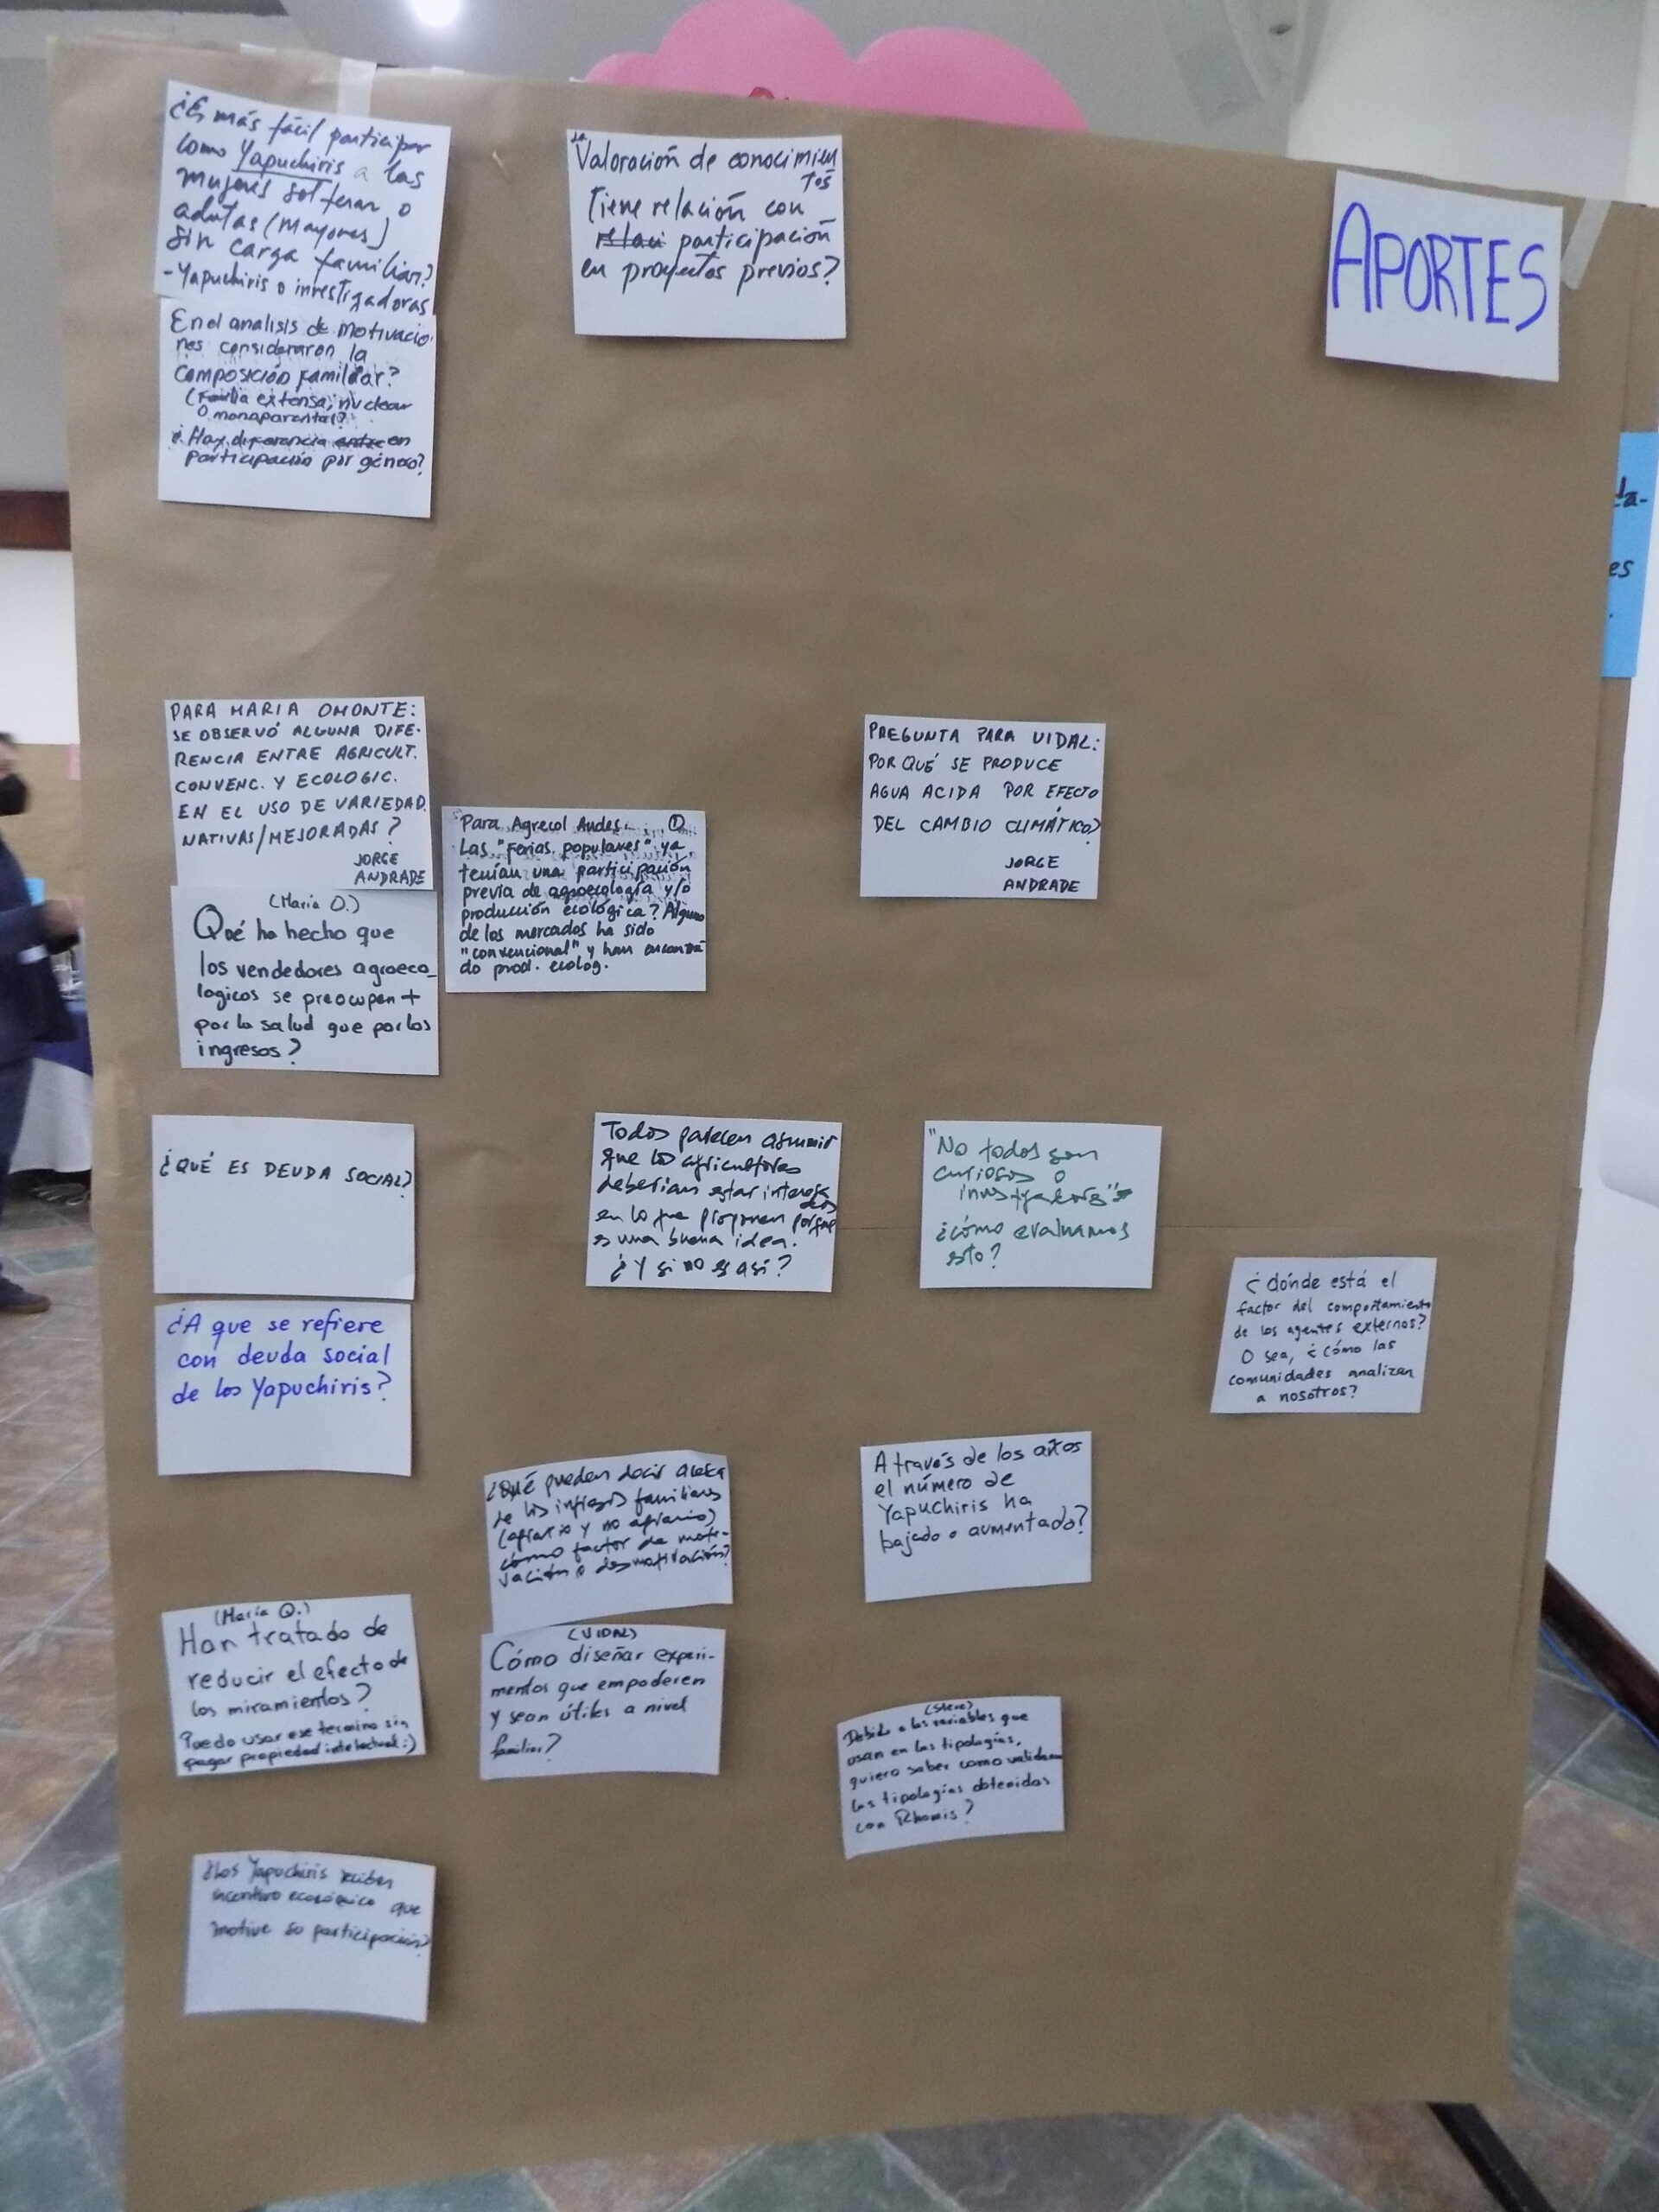 ¿Es más fácil participar
como Yapuchiris a las
mujeres solteras o
adultas (mayores)
sin carga familiar?
- Yapuchiris o investigadoras
En el analisis de motivacio
nes consideraron la
composición familiar?
(Familia extensa, nuclear
o monoparental?
¿Hay diferencia entre en
participación por género?
La
Valoración de conocimien
tos
Tiene relación con
relaci participación
en proyectos previos?
APORTES
da-
es
.
PARA MARIA OMONTE:
SE OBSERVÓ ALGUNA DIFE-
RENCIA ENTRE AGRICULT.
CONVENC. Y ECOLOGIC.
EN EL USO DE VARIEDAD.
NATIVAS/MEJORADAS?
JORGE
ANDRADE
(María O.)
Qué ha hecho que
los vendedores agroeco_
logicos se preocupen +
por la salud que por los
ingresos?
Para Agrecol Andes. ①
Las "Ferias populares" ya
tenían una participación
previa de agroecología y/o
producción ecológica? Alguno
de los mercados ha sido
"convencional" y han encontra
do prod. ecolog.
PREGUNTA PARA VIDAL:
POR QUÉ SE PRODUCE
AGUA ACIDA POR EFECTO
DEL CAMBIO CLIMÁTICO?
JORGE
ANDRADE
¿QUÉ ES DEUDA SOCIAL?
¿A que se refiere
con deuda social
de los Yapuchiris?
Todos parecen asumir
que los agricultores
deberian estar interesa
dos
en lo que proponen porque
es una buena idea.
¿Y si no es así?
"No todos son
curiosos o
investigadores"
¿cómo evaluamos
esto?
¿dónde está el
factor del comportamiento
de los agentes externos?
O sea, ¿cómo las
comunidades analizan
a nosotros?
¿Qué pueden decir acerca
de los ingresos familiares
(agrario y no agrario)
como factor de moti-
vación o desmotivación?
A través de los años
el número de
Yapuchiris ha
bajado o aumentado?
(María Q.)
Han tratado de
reducir el efecto de
los miramientos?
Puedo usar ese termino sin
pagar propiedad intelectual :)
(VIDAL)
Cómo diseñar experi-
mentos que empoderen
y sean útiles a nivel
familiar?
(Steve)
Debido a las variables que
usan en las tipologías,
quiero saber como validaron
las tipologías obtenidas
con Rhomis?
¿Los Yapuchiris reciben
incentivo económico que
motive su participación?